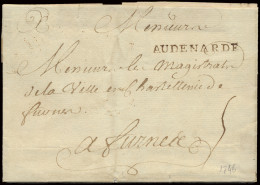 Messieurs
AUDENARDE
Messieurs les Magistrats
de la Ville et Chastellenie de
furnes
a furnes
5